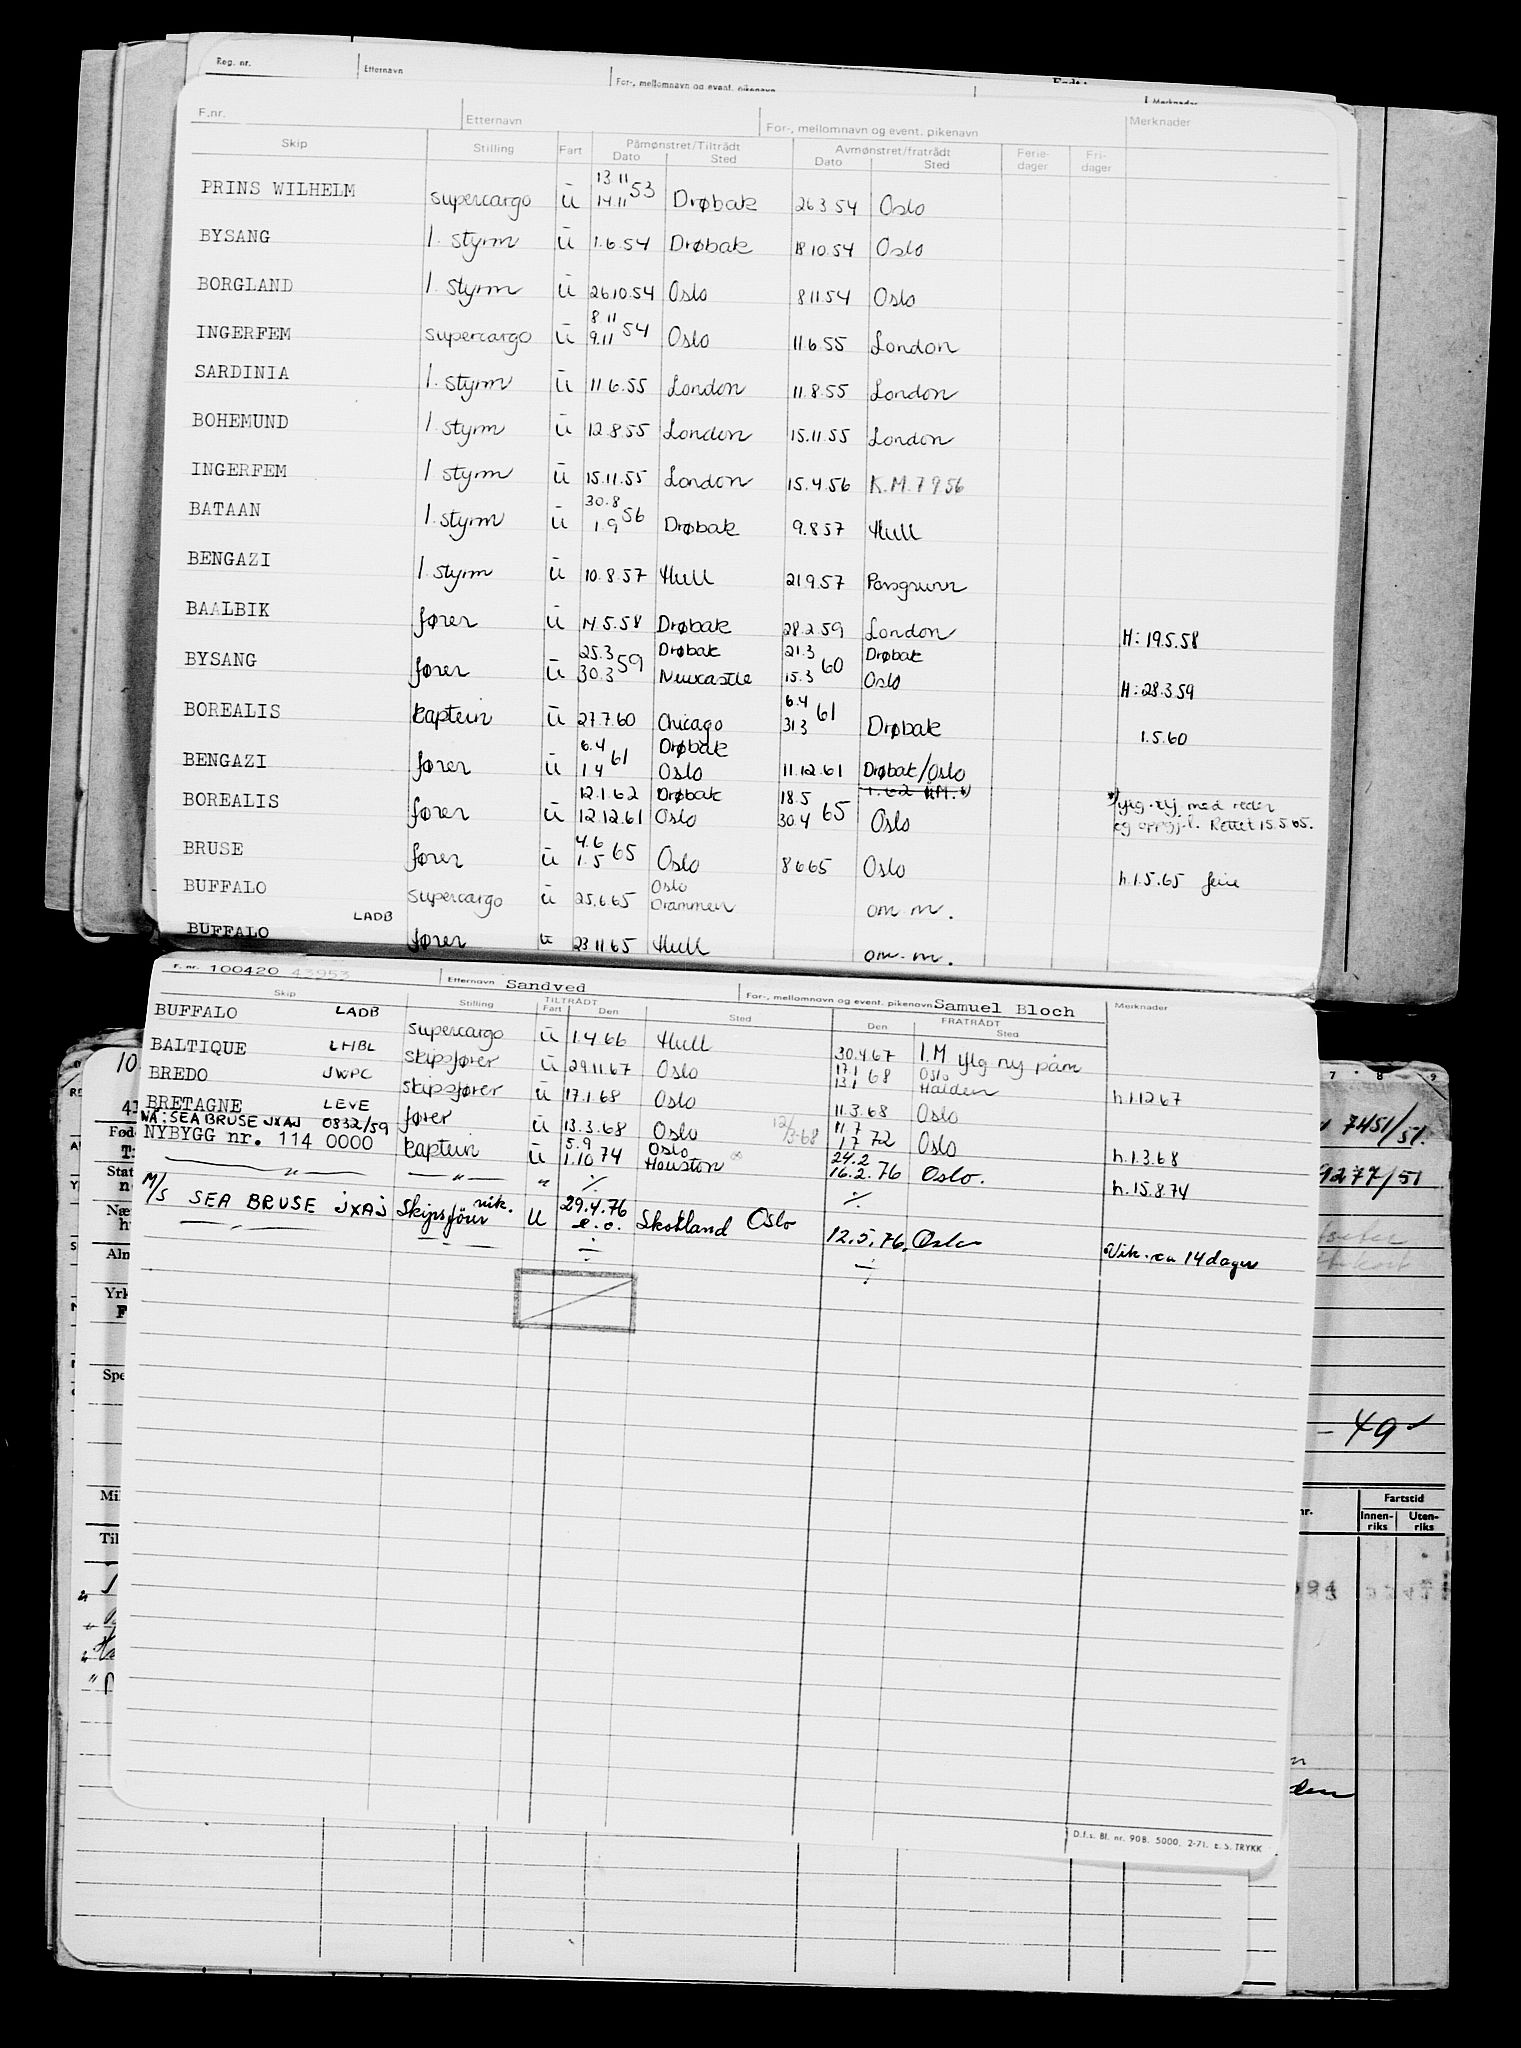 Reg. nr. Etternavn For-, mellomnavn og event. pikenavn Merknader
F.nr. Etternavn For-, mellomnavn og event. pikenavn Merknader
Skip Stilling Fart Påmønstret/Tiltrådt Avmønstret/fratrådt Ferie- Fri-
Dato Sted Dato Sted dager dager
13 11
PRINS WILHELM supercargo u 14 11 53 Drøbak 26 3 54 Oslo
BYSANG 1. styrm u 1.6.54 Drøbak 18 10.54 Oslo
BORGLAND 1. styrm u 26 10.54 Oslo 8 11.54 Oslo
8 11
INGERFEM supercargo u 9.11 54 Oslo 11 6.55 London
SARDINIA 1. styrm u 11 6.55 London 11.8.55 London
BOHEMUND 1. styrm u 12.8.55 London 15.11.55 London
INGERFEM 1 styrm u 15.11.55 London 15.4.56 K.M. 7 9 56
30.8
BATAAN 1. styrm u 1.9 56 Drøbak 9.8 57 Hull
BENGAZI 1. styrm u 10.8.57 Hull 21 9.57 Porsgrunn
BAALBIK fører u 14.5.58 Drøbak 28.2.59 London H: 19.5.58
25.3 Drøbak 21.3 Drøbak
BYSANG fører u 30.3 59 Newcastle 15.3 60 Oslo H: 28.3.59
6.4
BOREALIS kaptein u 27.7.60 Chicago 31 3 61 Drøbak 1.5.60
6.4 Drøbak
BENGAZI fører u 1.4 61 Oslo 11.12.61 Drøbak/Oslo
12.1.62 Drøbak 18.5
BOREALIS fører u 12.12.61 Oslo 30.4 65 Oslo Rettet 15.5.65.
4.6
BRUSE fører u 1.5 65 Oslo 8 6 65 Oslo h.1.5.65 ferie
Oslo
BUFFALO supercargo u 25.6.65 Drammen om m.
BUFFALO LADB fører u 23 11 65 Hull om.m.
F. nr. 100420 43953 Etternavn Sandved For-, mellomnavn og event. pikenavn Samuel Bloch Merknader
Skip Stilling TILTRÅDT FRATRÅDT
Fart Den Sted Den Sted
BUFFALO LADB supercargo u 1.4.66 Hull 30.4.67 I.M iflg ny påm
17.1 Oslo
BALTIQUE LHBL skipsfører u 29.11.67 Oslo 13.1 68 Halden h.1.12 67
BREDO JWPC skipsfører u 17.1.68 Oslo 11.3.68 Oslo
11.7
BRETAGNE LEVE fører u 13.3.68 Oslo 12/3-68 1.7 72 Oslo h.1.3.68
NÅ: SEA BRUSE JXAJ 0832/59
5.9 Oslo 24.2
NYBYGG nr. 114 0000 kaptein u 1.10 74 Houston 16.2.76 Oslo. h.15.8.74
— " — — " — " ·/· ·/·
M/S SEA BRUSE JXAJ Skipsfører vik. U 29.4.76 e.o. Skottland Oslo 12.5.76. Oslo Vik. ca 14 dager
D.f.s. Bl. nr. 90B. 5000. 2-71. E. S. TRYKK
7 8 9
7451/51.
9277/51
- 49
Fartstid
Innen- Uten-
riks riks